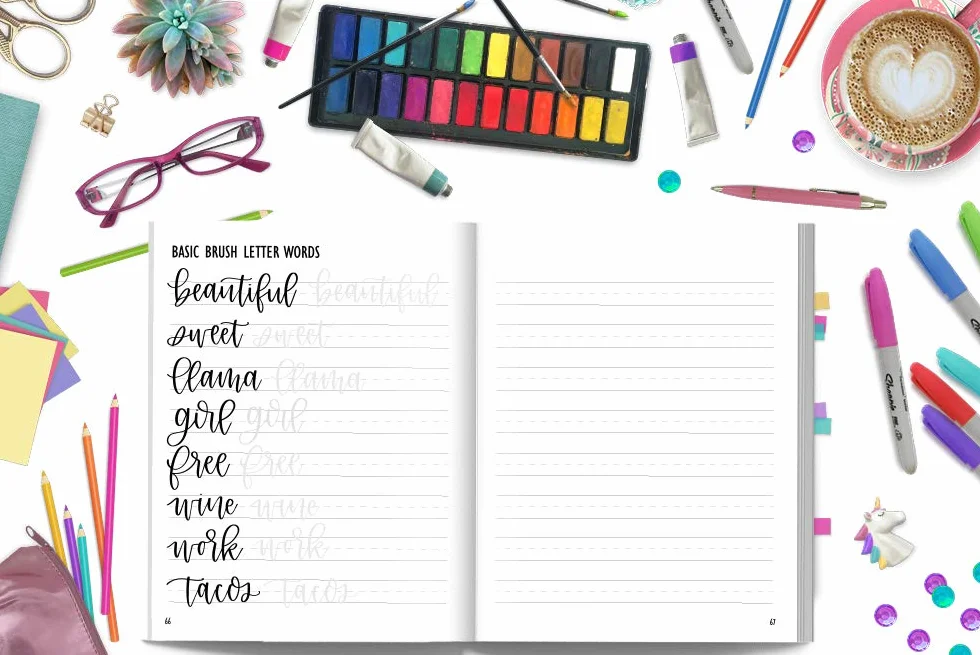 BASIC BRUSH LETTER WORDS
beautiful beautiful
sweet sweet
llama llama
girl girl
free free
wine wine
work work
tacos tacos
66
67
Sharpie